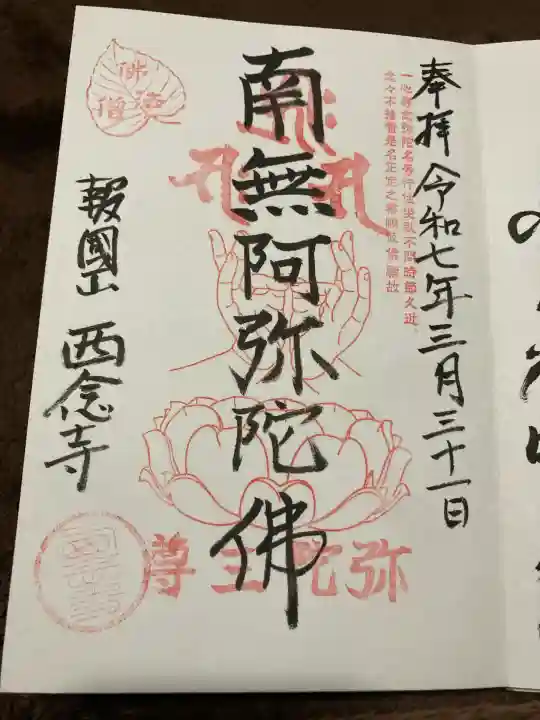 奉拝 令和七年三月三十一日
一心専念弥陀名号行住坐臥不問時節久近
念々不捨者是名正定之業順彼佛願故
南無阿弥陀佛
弥陀三尊
佛法僧
報國山 西念寺